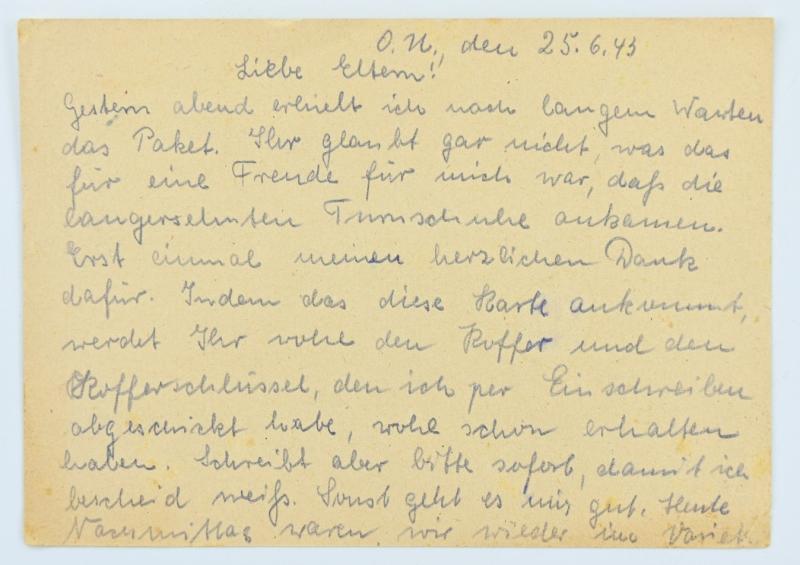 O.U., den 25.6.43
Liebe Eltern!
Gestern abend erhielt ich nach langem Warten
das Paket. Ihr glaubt gar nicht, was das
für eine Freude für mich war, daß die
langersehnten Turnschuhe ankamen.
Erst einmal meinen herzlichen Dank
dafür. Indem das diese Karte ankommt,
werdet Ihr wohl den Koffer und den
Kofferschlüssel, den ich per Einschreiben
abgeschickt habe, wohl schon erhalten
haben. Schreibt aber bitte sofort, damit ich
bescheid weiß. Sonst geht es mir gut. Heute
Nachmittag waren wir wieder im